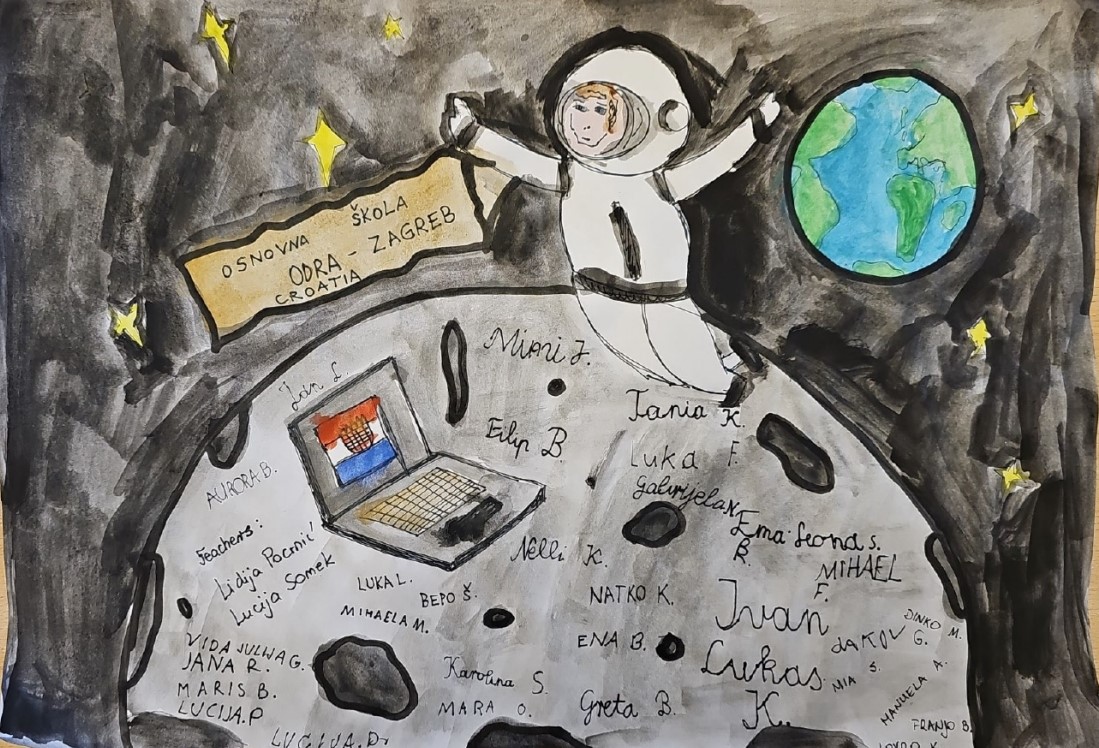 OSNOVNA ŠKOLA
ODRA - ZAGREB
CROATIA
Mimi J.
Jan L.
Tania K.
Filip B.
Luka F.
AURORA B.
Gabrijela N.
Ema R.
Leona S.
Teachers:
MIHAEL F.
Lidija Pocrnić
Lucija Somek
Nelli K.
LUKA L.
BEPO Š.
NATKO K.
MIHAELA M.
Ivan
DINKO M.
JAKOV G.
ENA B.
VIDA JULIJA G.
JANA R.
Lukas K.
MIA S.
Karolina S.
MARIS B.
MANUELA A.
MARA O.
Greta B.
LUCIJA.P
FRANJO B.
LUCIJA.D.